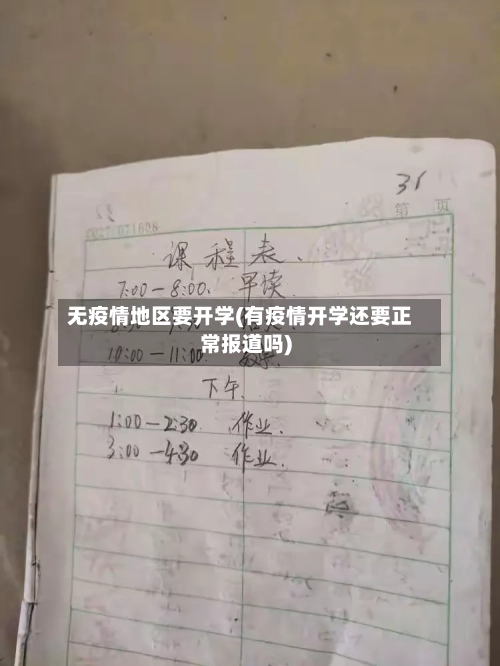 31
第 页
课程表.
7:00—8:00. 早读
无疫情地区要开学(有疫情开学还要正
常报道吗)
10:00—11:00
下午.
1:00—2:30 作业.
3:00—4:30 作业.